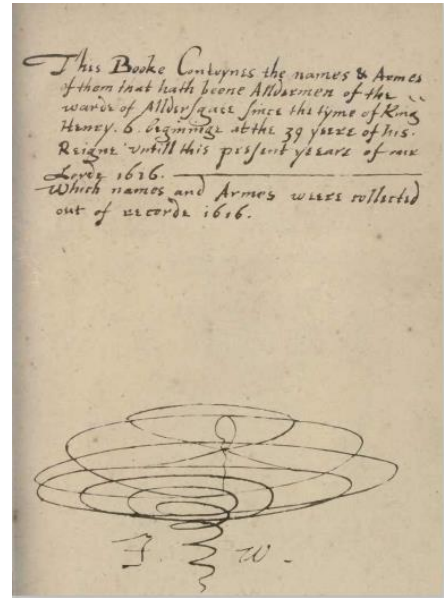 This Booke Conteynes the names & Armes
of them that hath beene Alldermen of the
warde of Alldersgate since the tyme of King
Henry. 6. beginninge at the 39 yeere of his.
Reigne untill this present yeeare of our
Lorde 1616.
Which names and Armes weere collected
out of recorde 1616.
J. W.